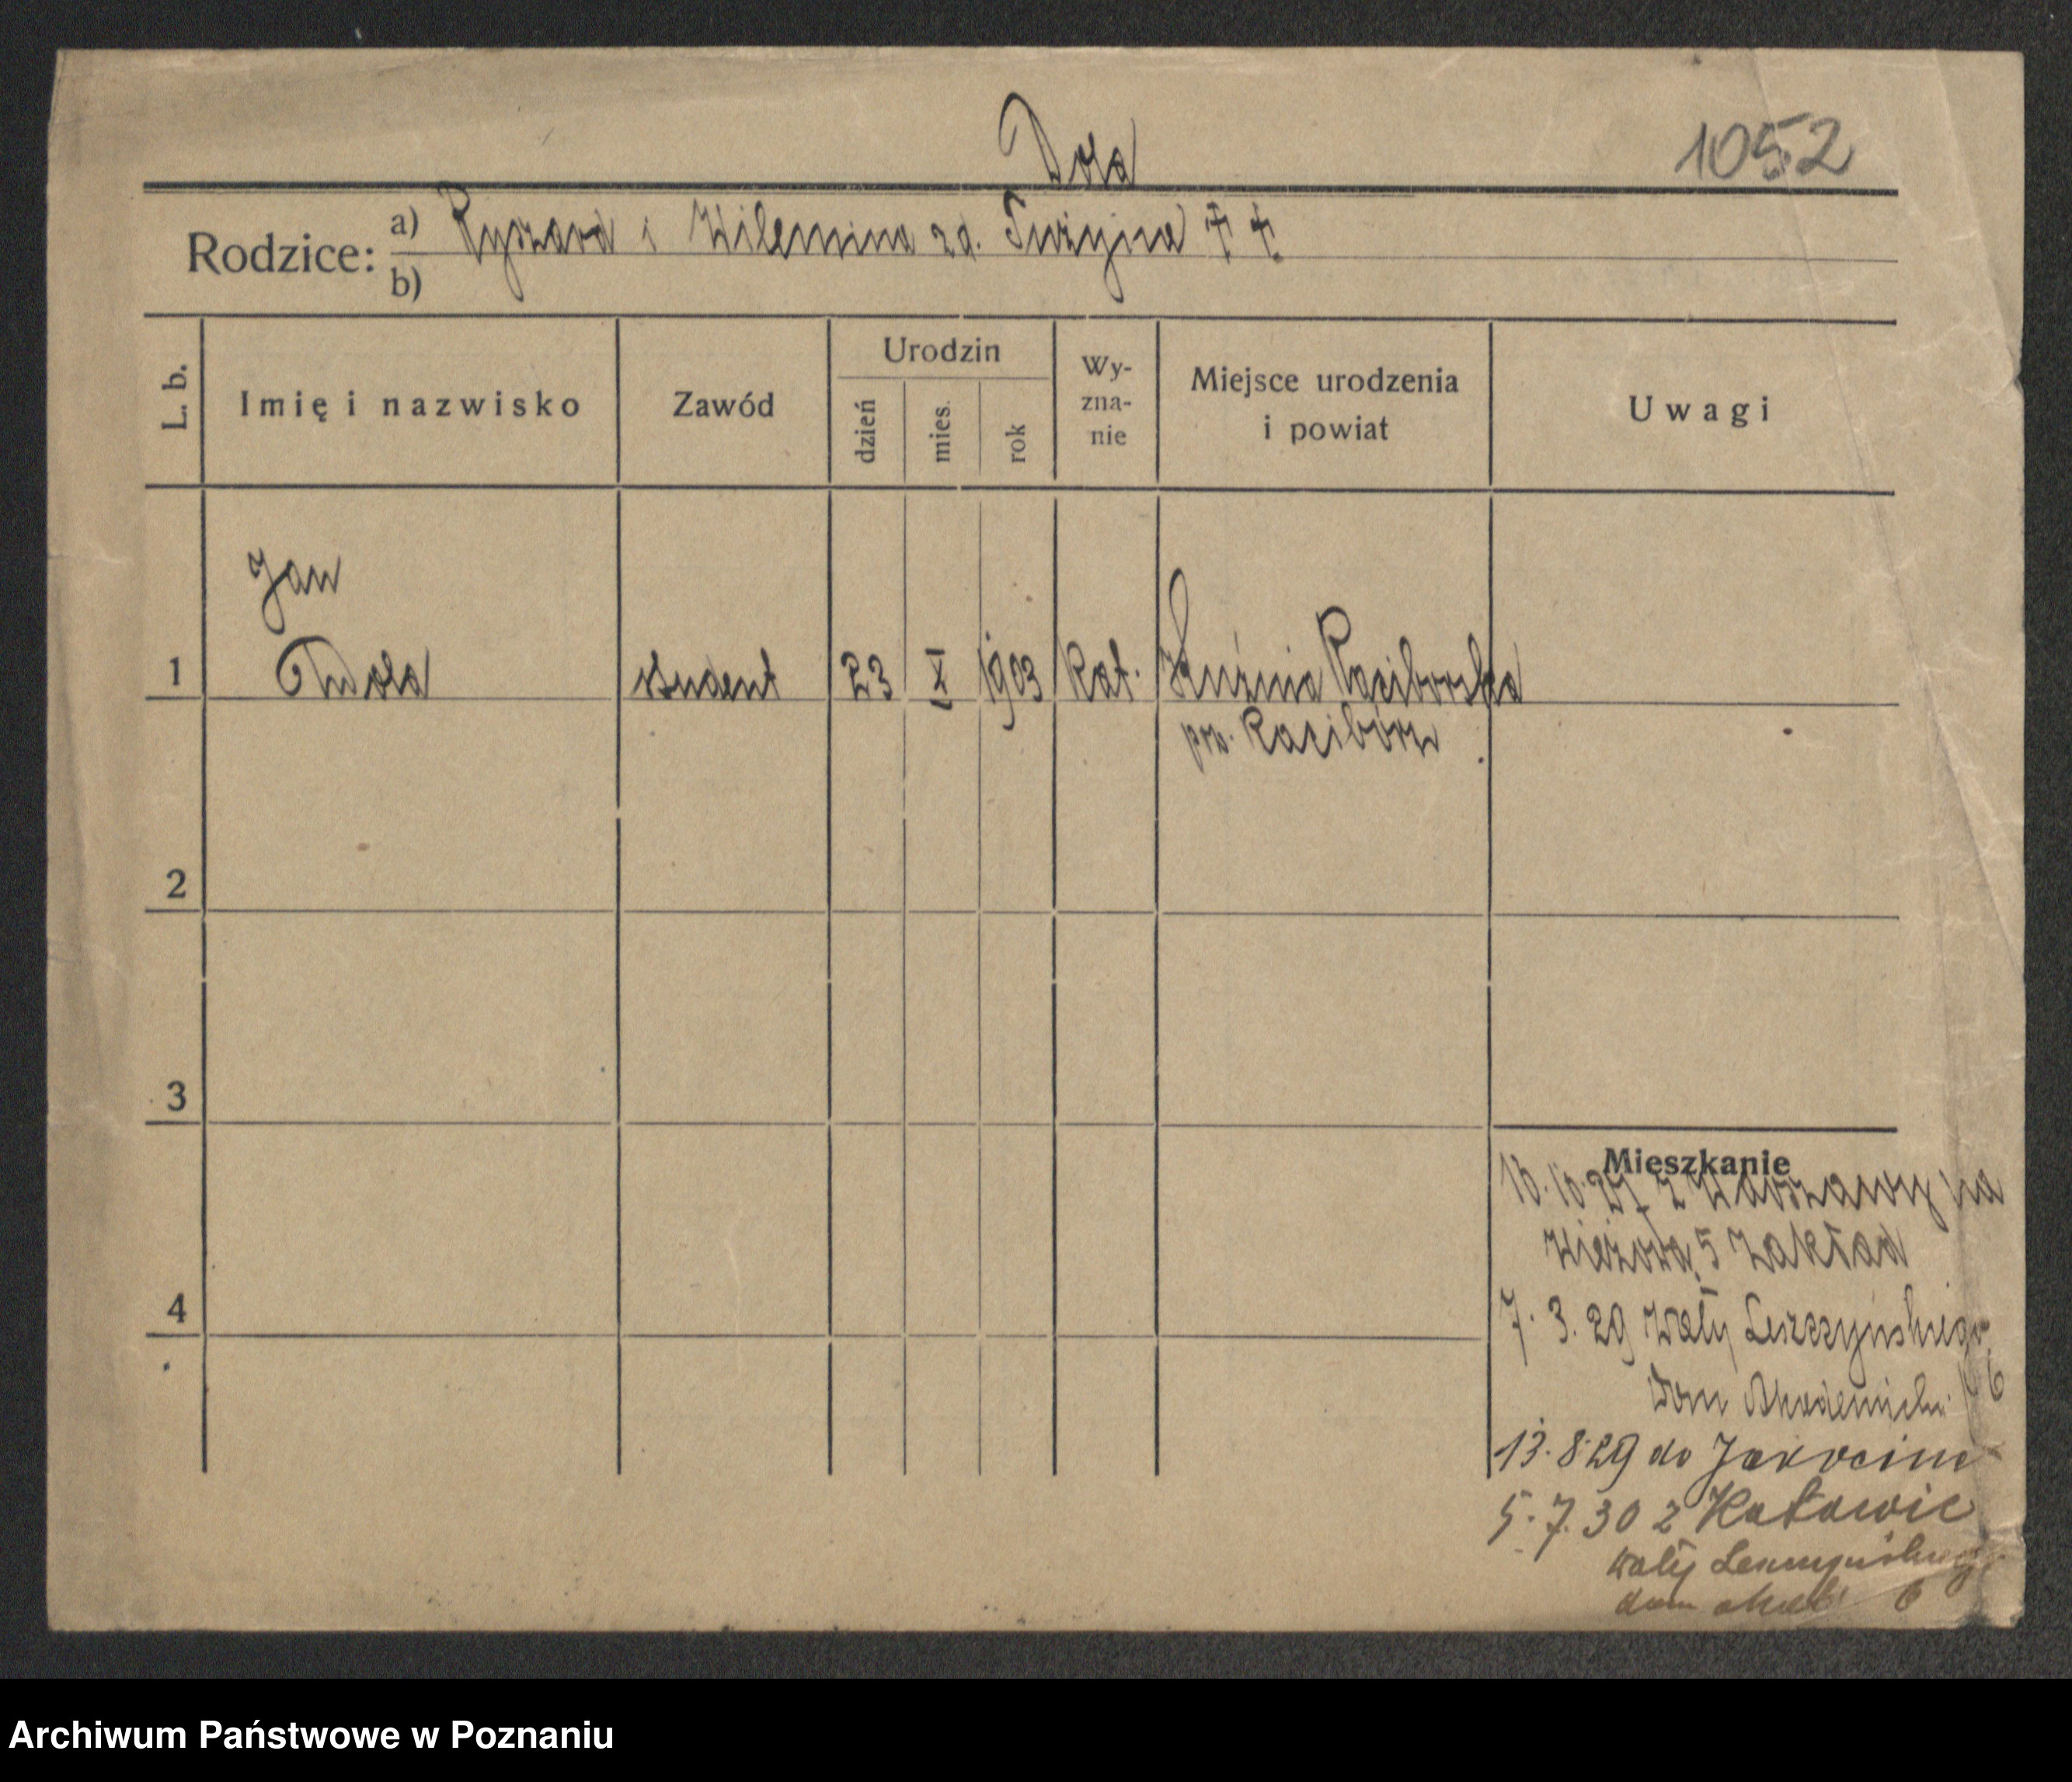 Dola
1052
Rodzice: a) Ryszard i Wilemina zd. Twizyna ‡ ‡
b)
L. b.
Imię i nazwisko
Zawód
Urodzin
dzień
mies.
rok
Wy-
zna-
nie
Miejsce urodzenia
i powiat
Uwagi
Jan
1 Dola student 23 X 1903 kat. Kuźnia Raciborska
pow. Racibórz
2
3
4
Mieszkanie
10.10.27 z Warszawy na
Wieżowa 5 Zakład
7.3.29 Wały Leszczyńskiego
Dom Akademicki 6
13.8.29 do Jarocina
5.7.30 z Katowic
Wały Leszczyńskiego
dom akad. 6
Archiwum Państwowe w Poznaniu